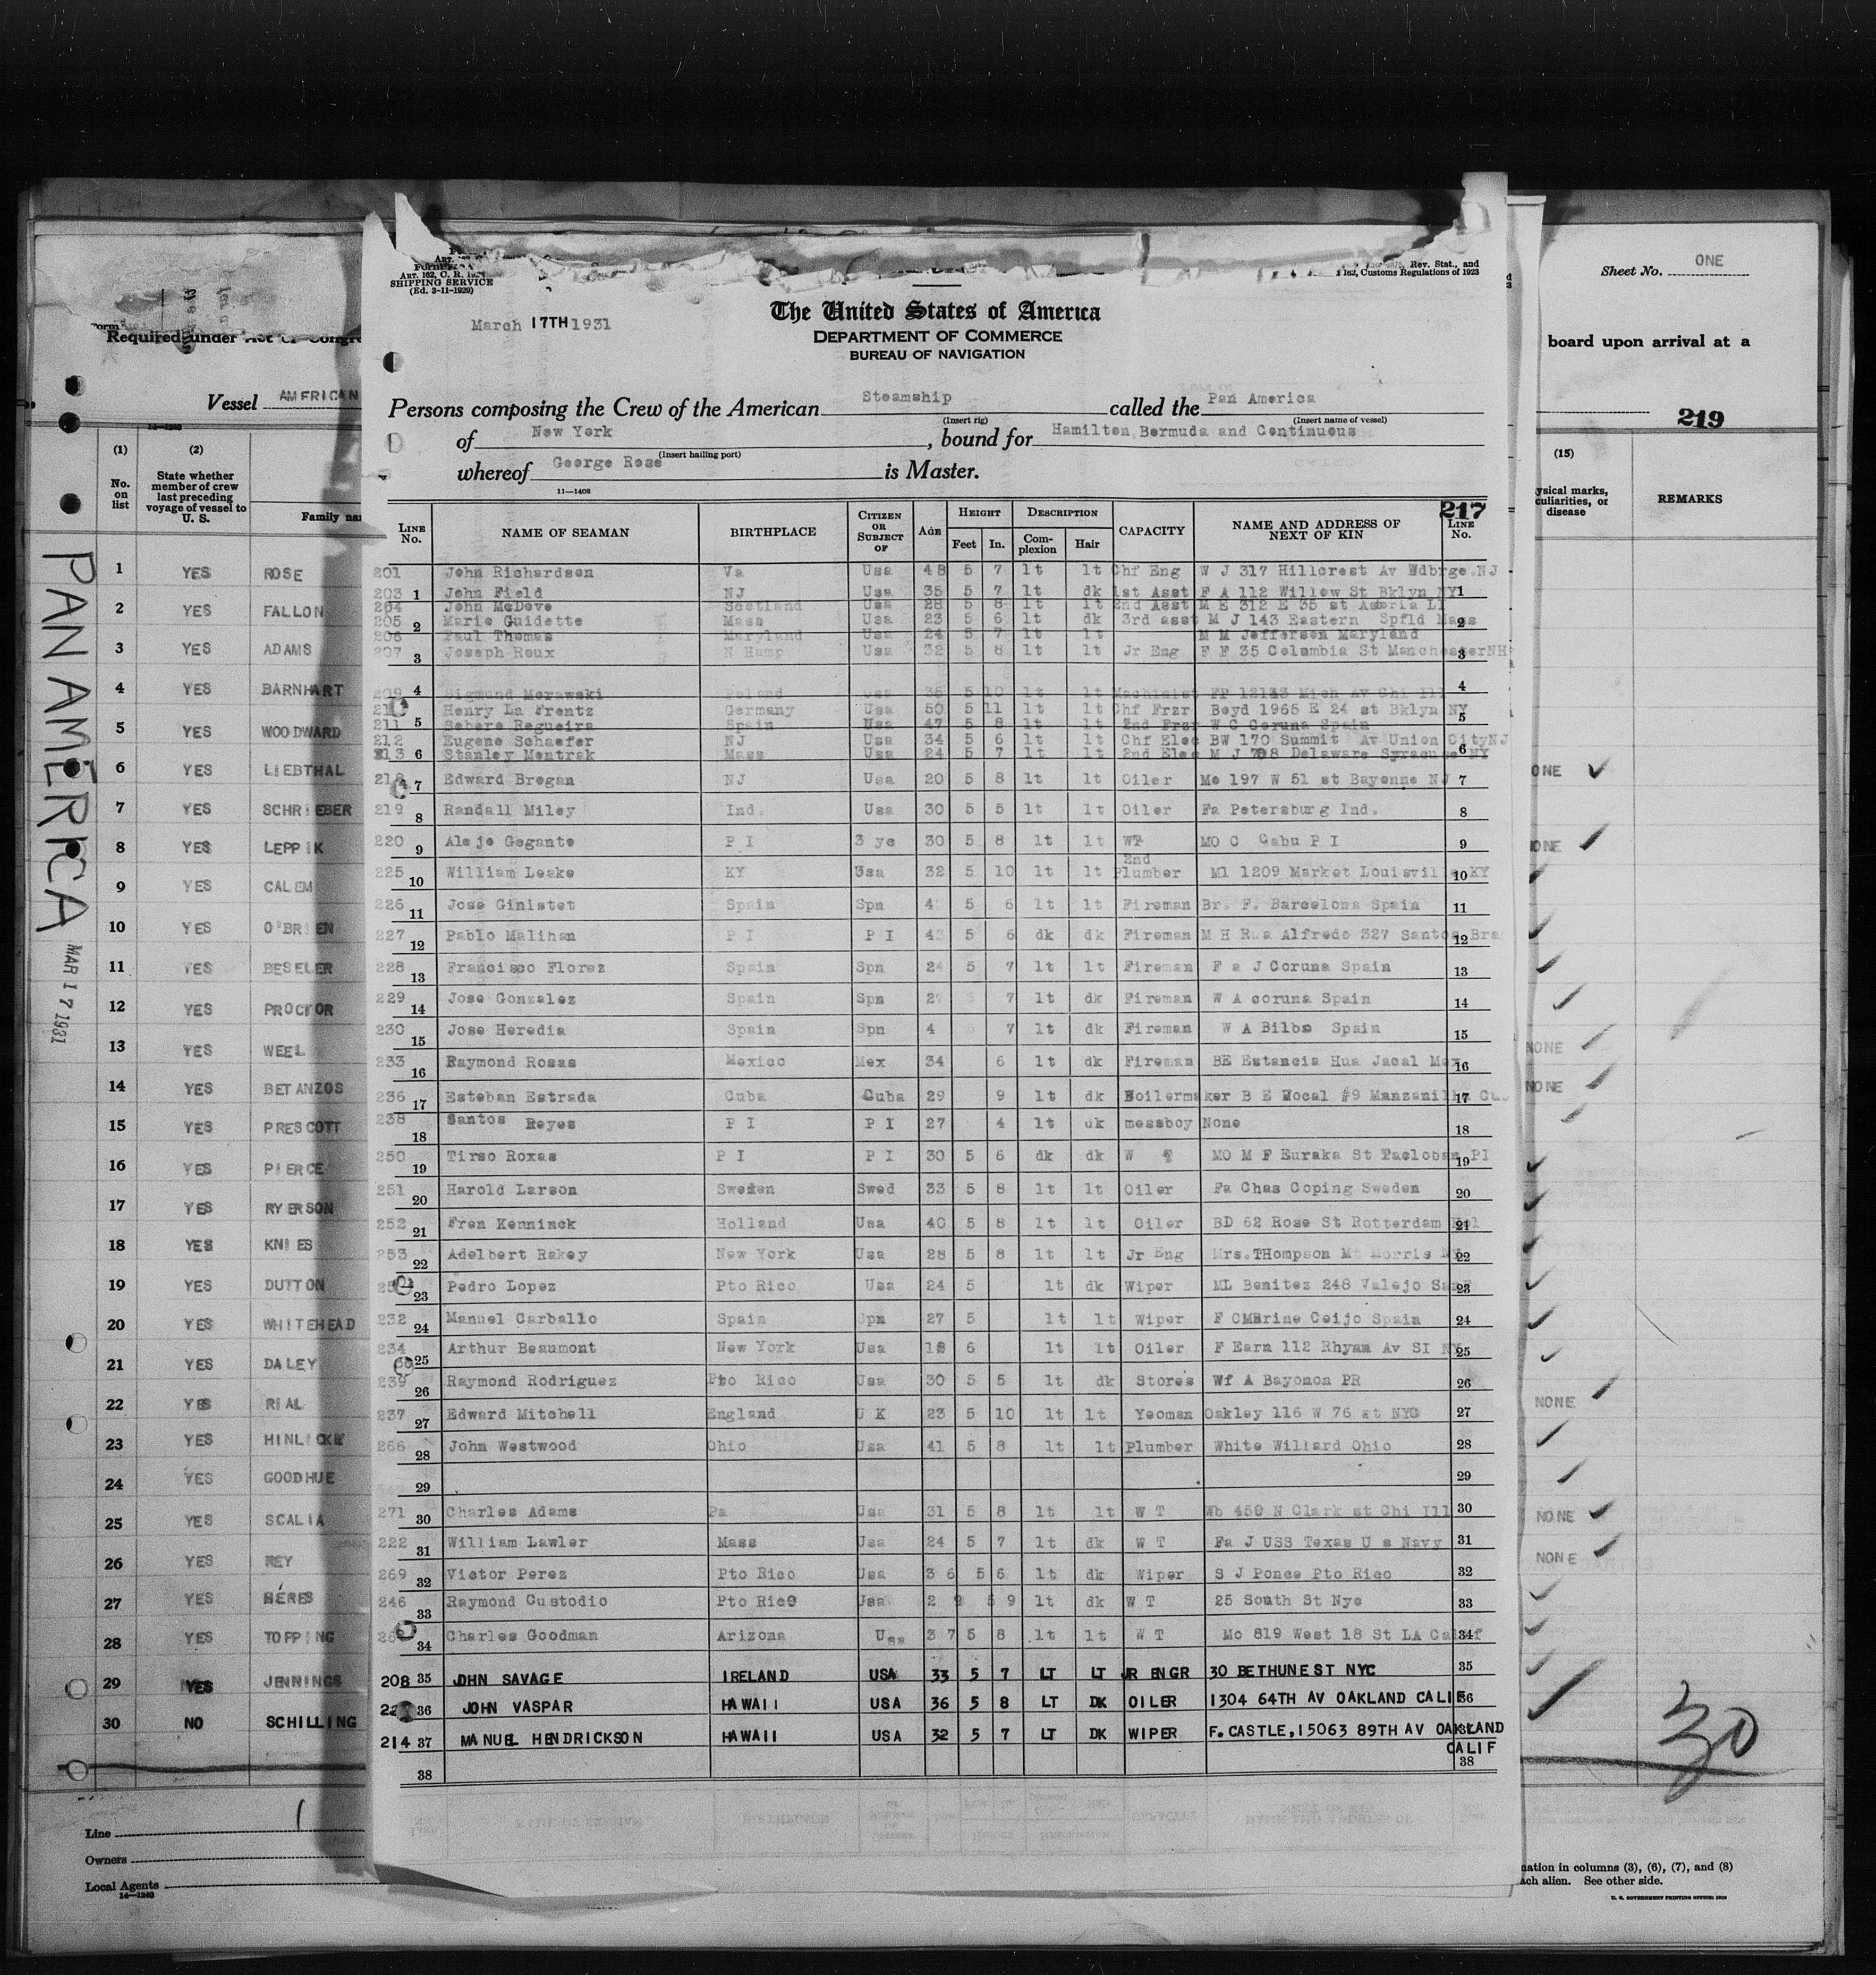 Form
ART. 162, C. R. 1931
SHIPPING SERVICE
(Ed. 3-11-1929)
Rev. Stat., and
162, Customs Regulations of 1923
March 17TH 1931
The United States of America
DEPARTMENT OF COMMERCE
BUREAU OF NAVIGATION
Persons composing the Crew of the American Steamship called the Pan America
(Insert rig) (Insert name of vessel)
of New York, bound for Hamilton Bermuda and Continuous
(Insert hailing port)
whereof George Rose is Master.
11—1408
217
LINE No. NAME OF SEAMAN BIRTHPLACE CITIZEN OR SUBJECT OF AGE HEIGHT Feet In. DESCRIPTION Complexion Hair CAPACITY NAME AND ADDRESS OF NEXT OF KIN LINE No.
201 John Richardson Va Usa 48 5 7 lt lt Chf Eng W J 317 Hillcrest Av Wdbrge NJ
203 1 John Field NJ Usa 35 5 7 lt dk 1st Asst F A 112 Willow St Bklyn NY 1
204 John McDove Scotland Usa 28 5 8 lt lt 2nd Asst M E 312 E 35 st Astoria LI
205 2 Marie Guidette Mass Usa 23 5 6 lt dk 3rd asst M J 143 Eastern Spfld Mass 2
206 Paul Thomas Maryland Usa 24 5 7 lt lt M M Jefferson Maryland
207 3 Joseph Roux N Hamp Usa 32 5 8 lt lt Jr Eng F F 35 Columbia St Manchester NH 3
209 4 Sigmund Morawski Poland Usa 5 10 lt lt Machinist FP Mich Av Chi Ill 4
Henry La Frentz Germany Usa 50 5 11 lt lt Chf Frzr Boyd 1965 E 24 st Bklyn NY
211 5 Regueira Spain 47 5 8 lt lt 2nd Frzr W C Coruna Spain 5
212 Eugene Schaefer NJ Usa 34 5 6 lt lt Chf Elec BW 170 Summit Av Union City NJ
213 6 Stanley Montrak Mass Usa 24 5 7 lt lt 2nd Elec M J Delaware Syracuse NY 6
7 Edward Brogan NJ Usa 20 5 8 lt lt Oiler Mo 197 W 51 st Bayonne NJ 7
219 8 Randall Miley Ind. Usa 30 5 5 lt lt Oiler Fa Petersburg Ind. 8
220 9 Alejo Gegante P I 3 ye 30 5 8 lt lt WT MO C Cabu P I 9
225 10 William Leake KY Usa 32 5 10 lt lt 2nd Plumber Ml 1209 Market Louisville KY 10
226 11 Jose Ginistet Spain Spn 4 5 6 lt lt Fireman Br. F. Barcelona Spain 11
227 12 Pablo Malihan P I P I 43 5 6 dk dk Fireman M H Rua Alfredo 327 Santos Bra 12
228 13 Francisco Florez Spain Spn 24 5 7 lt lt Fireman F a J Coruna Spain 13
229 14 Jose Gonzalez Spain Spn 27 7 lt dk Fireman W A coruna Spain 14
230 15 Jose Heredia Spain Spn 4 7 lt dk Fireman W A Bilbo Spain 15
233 16 Raymond Rosas Mexico Mex 34 6 lt dk Fireman BE Estancia Hua Jacal Mex 16
236 17 Esteban Estrada Cuba Cuba 29 9 lt dk Boilermaker B E Vocal #9 Manzenilla Cu 17
238 18 Santos Reyes P I P I 27 4 lt dk messboy None 18
250 19 Tirso Roxas P I P I 30 5 6 dk dk W T MO M F Euraka St Tacloban PI 19
251 20 Harold Larson Sweden Swed 33 5 8 lt lt Oiler Fa Chas Coping Sweden 20
252 21 Fren Kenninck Holland Usa 40 5 8 lt lt Oiler BD 62 Rose St Rotterdam Hol 21
253 22 Adelbert Rakey New York Usa 28 5 8 lt lt Jr Eng Mrs. THompson Mt Morris NY 22
23 Pedro Lopez Pto Rico Usa 24 5 lt dk Wiper ML Benitez 248 Valejo 23
232 24 Manuel Carballo Spain Spn 27 5 lt lt Wiper F CMarine Ceijo Spain 24
234 25 Arthur Beaumont New York Usa 18 6 lt lt Oiler F Earn 112 Rhyam Av SI NY 25
239 26 Raymond Rodriguez Pto Rico Usa 30 5 5 lt dk Stores Wf A Bayomon PR 26
237 27 Edward Mitchell England U K 23 5 10 lt lt Yeoman Oakley 116 W 76 st NYC 27
266 28 John Westwood Ohio Usa 41 5 8 lt lt Plumber White Willard Ohio 28
29 29
271 30 Charles Adams Pa Usa 31 5 8 lt lt W T Wb 459 N Clark st Chi Ill 30
222 31 William Lawler Mass Usa 24 5 7 lt dk W T Fa J USS Texas U s Navy 31
269 32 Victor Perez Pto Rico Usa 3 6 5 6 lt dk Wiper S J Ponce Pto Rico 32
246 33 Raymond Custodio Pto Rico Usa 2 9 5 9 lt dk W T 25 South St Nyc 33
34 Charles Goodman Arizona Usa 3 7 5 8 lt lt W T Mo 819 West 18 St LA Calif 34
208 35 JOHN SAVAGE IRELAND USA 33 5 7 LT LT JR ENGR 30 BETHUNE ST NYC 35
36 JOHN VASPAR HAWAII USA 36 5 8 LT DK OILER 1304 64TH AV OAKLAND CALIF 36
214 37 MANUEL HENDRICKSON HAWAII USA 32 5 7 LT DK WIPER F. CASTLE, 15063 89TH AV OAKLAND CALIF 37
38 38
Required under Act of Congre
Vessel AMERICAN
14—1240
(1) No. on list
(2) State whether member of crew last preceding voyage of vessel to U. S.
Family na
1 YES ROSE
2 YES FALLON
3 YES ADAMS
4 YES BARNHART
5 YES WOODWARD
6 YES LIEBTHAL
7 YES SCHRIEBER
8 YES LEPPIK
9 YES CALEM
10 YES O'BRIEN
11 YES BESELER
12 YES PROCTOR
13 YES WEEL
14 YES BETANZOS
15 YES PRESCOTT
16 YES PIERCE
17 YES RYERSON
18 YES KNIES
19 YES DUTTON
20 YES WHITEHEAD
21 YES DALEY
22 YES RIAL
23 YES HINLICKE
24 YES GOODHUE
25 YES SCALIA
26 YES REY
27 YES BERES
28 YES TOPPING
29 YES JENNINGS
30 NO SCHILLING
Line
Owners
Local Agents
14—1240
PAN AMERICA
MAR 17 1931
Sheet No. ONE
board upon arrival at a
219
(15)
ysical marks, culiarities, or disease
REMARKS
ONE
ONE
NONE
NONE
NONE
NONE
NONE
30
mation in columns (3), (6), (7), and (8)
ach alien. See other side.
U. S. GOVERNMENT PRINTING OFFICE